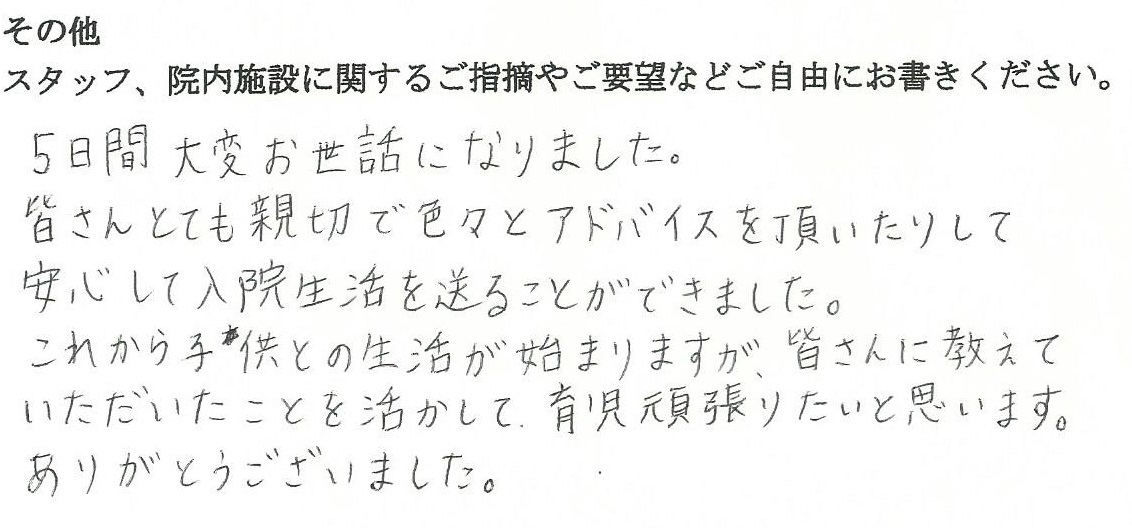 その他
スタッフ、院内施設に関するご指摘やご要望などご自由にお書きください。
5日間 大変お世話になりました。
皆さんとても親切で色々とアドバイスを頂いたりして
安心して入院生活を送ることができました。
これから子供との生活が始まりますが、皆さんに教えて
いただいたことを活かして、育児頑張りたいと思います。
ありがとうございました。